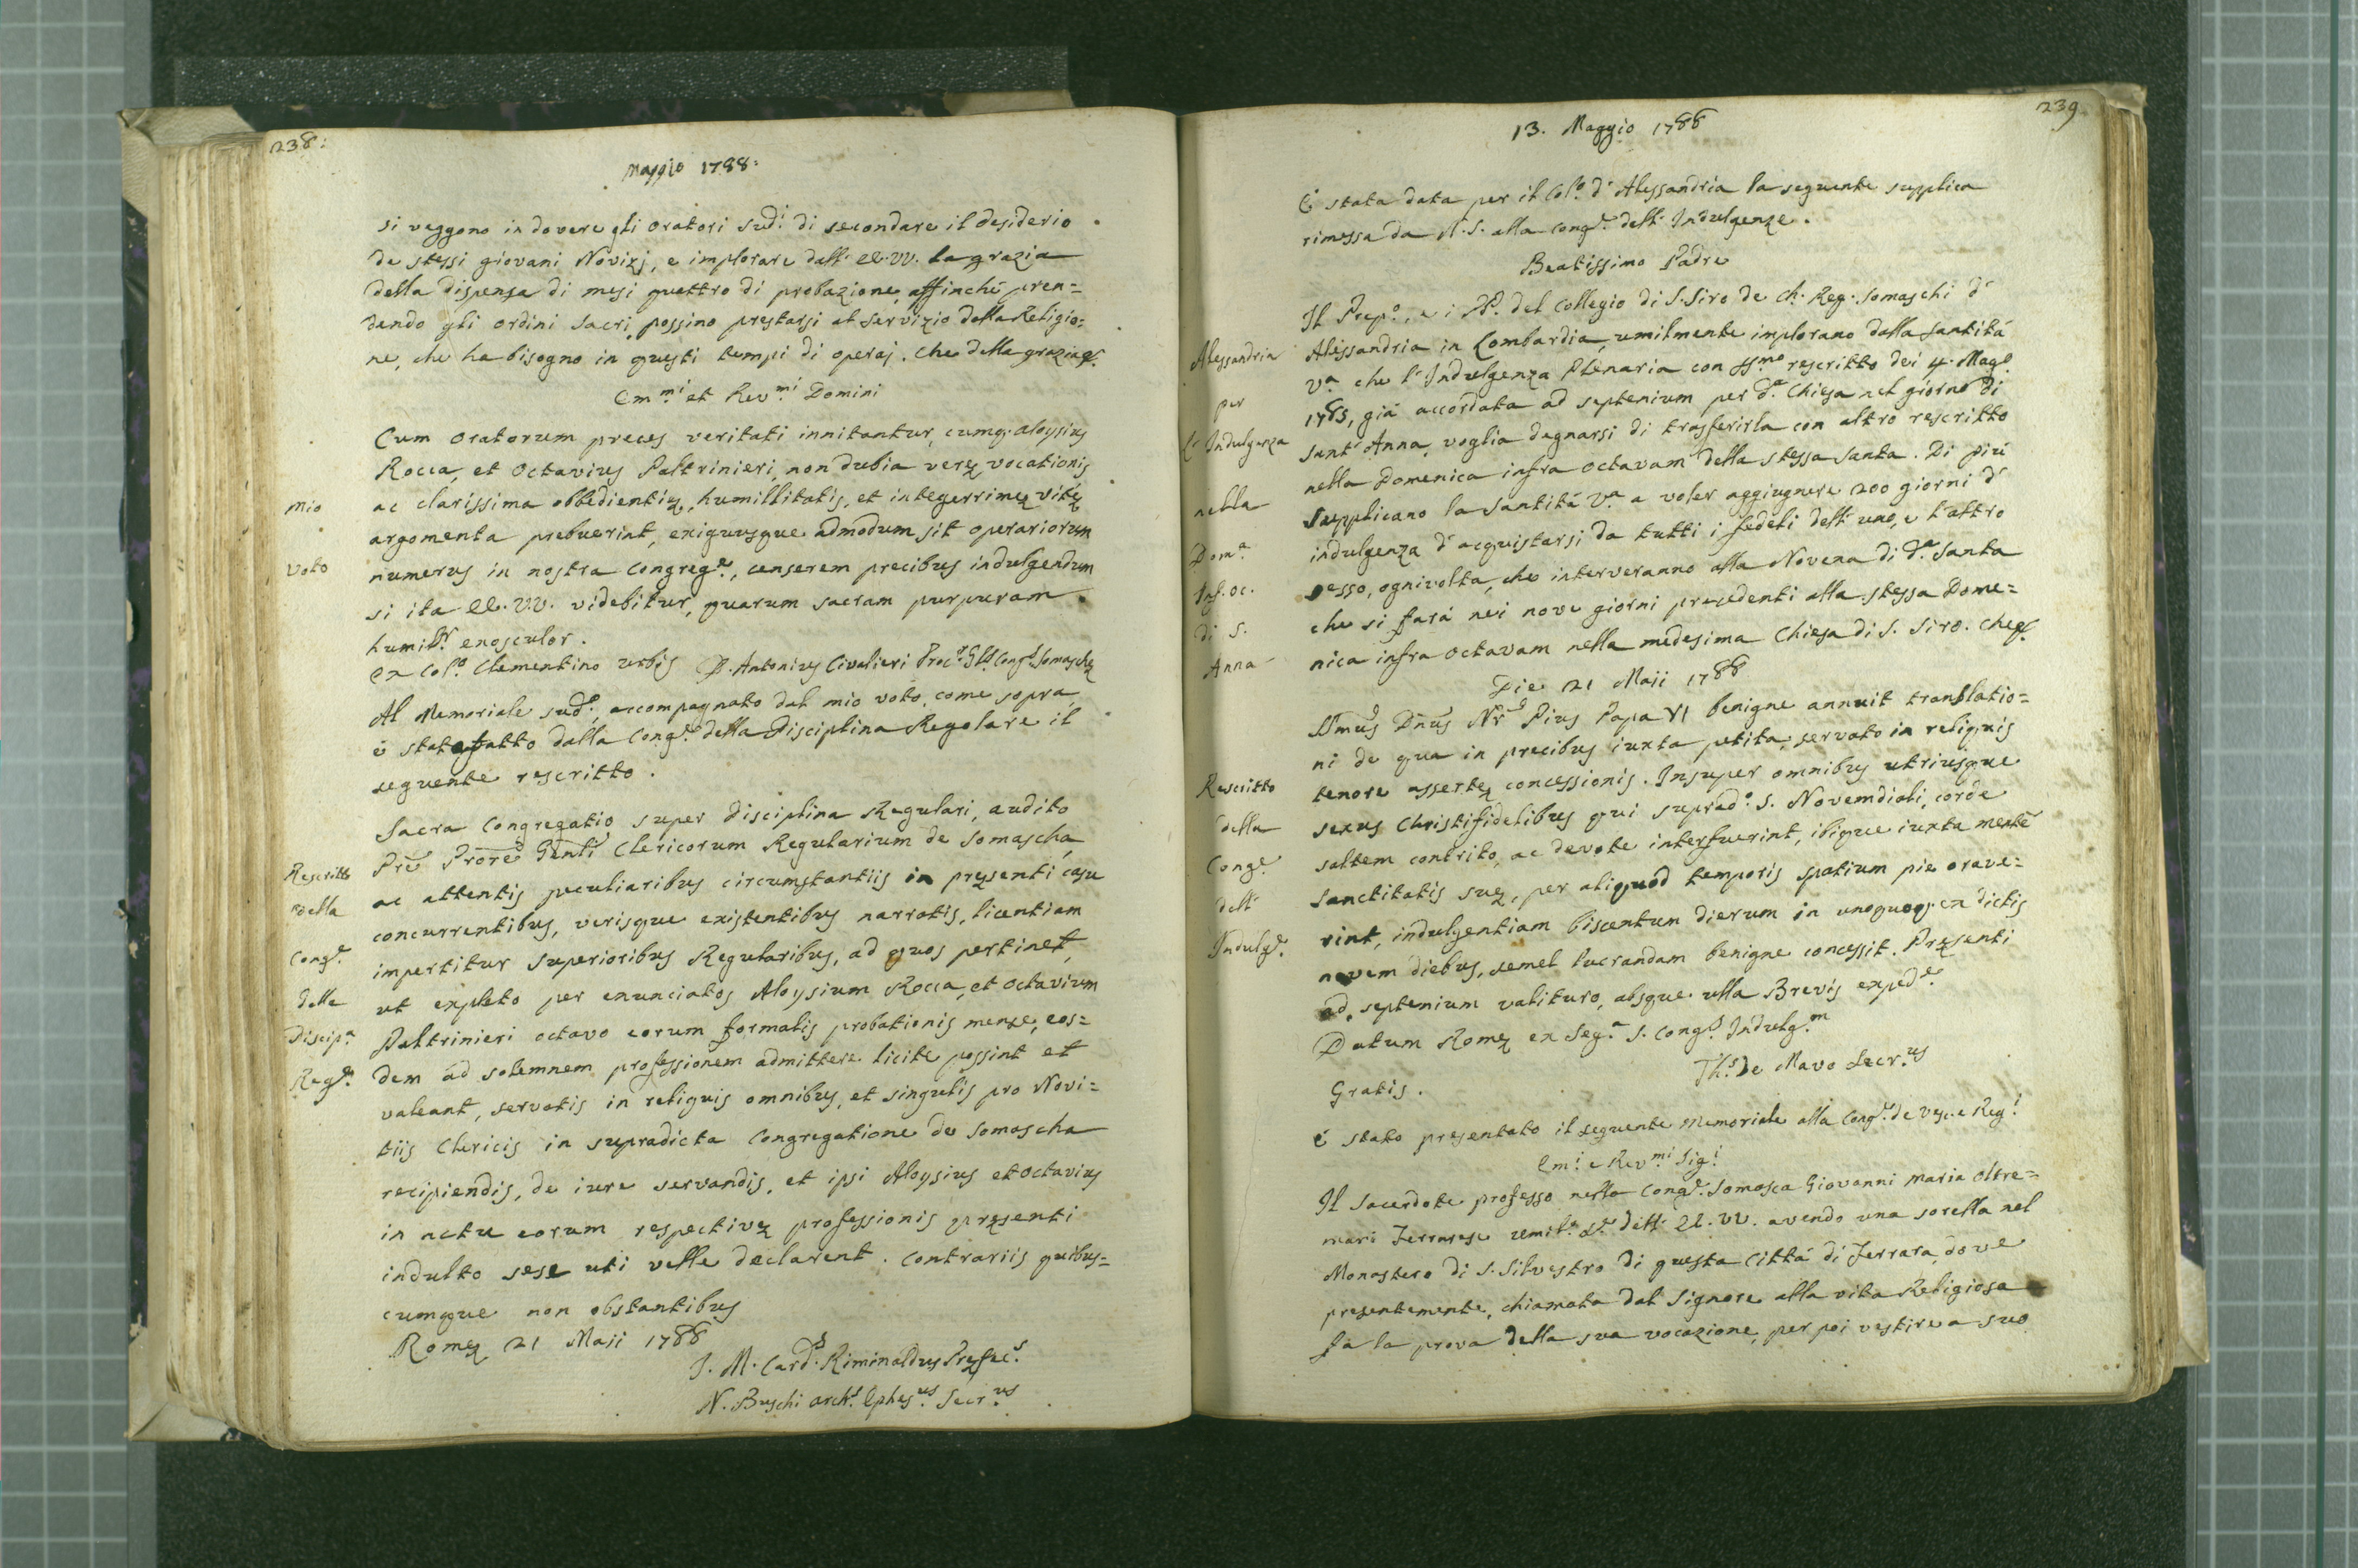 238:
Maggio 1788:
si veggono in dovere gli Oratori sud.i di secondare il desiderio
de stessi giovani Novizj, e implorare dall' EE. VV. la grazia
della dispensa di mesi quattro di probazione, affinchè pren=
dendo gli ordini Sacri, possino prestarsi al servizio della Religio=
ne, che ha bisogno in questi tempi di operaj. Che della grazia &.
Em.mi et Rev.mi Domini
Cum Oratorum preces veritati innitantur, cumq. Aloysius
Rocca, et Octavius Paltrinieri, non dubia veræ vocationis
mio
ac clarissima obbedientiæ, humillitatis, et integerrimæ vitæ
argomenta prebuerint, exiguusque admodum sit operariorum
voto
numerus in nostra Congreg.e, censerem precibus indulgendum
si ita EE. VV. videbitur, quarum sacram purpuram
humil.r exosculor.
Ex Col.o Clementino Urbis D. Antonius Civalieri Proc.r Gl.is Cong.s Somaschæ
Al Memoriale sud.o, accompagnato dal mio voto, come sopra,
è stato fatto dalla Cong.e della Disciplina Regolare il
seguente rescritto.
Sacra Congregatio super Disciplina Regulari, audito
Rescritto
Pre Prore Genli Clericorum Regularium de Somascha,
della
ac attentis peculiaribus circumstantiis in præsenti casu
concurrentibus, verisque existentibus narratis, licentiam
Cong.e
impertitur Superioribus Regularibus, ad quos pertinet,
delle
ut expleto per enunciatos Aloysium Rocca, et Octavium
Discip.a
Paltrinieri octavo eorum formalis probationis mense, eos=
Reg.e
dem ad solemnem professionem admittere licite possint et
valeant, servatis in reliquis omnibus, et singulis pro Novi=
tiis Clericis in supradicta Congregatione de Somascha
recipiendis, de iure servandis, et ipsi Aloysius et Octavius
in actu eorum respectivæ professionis præsenti
indulto sese uti velle declarent. Contrariis quibus=
cumque non obstantibus
Romæ 21 Maii 1788
J. M. Card.s Riminaldus Præfec.s
N. Buschi Arch.s Ephes.us Secr.us
239
13. Maggio 1788
È stata data per il Col.o d' Alessandria la seguente supplica
rimessa da N. S. alla Cong.e dell' Indulgenze.
Beatissimo Padre
Il Prep.o, e i PP. del Collegio di S. Siro de Ch. Reg. Somaschi d'
Alessandria
Alessandria in Lombardia, umilmente implorano dalla Santità
V.a che l' Indulgenza Plenaria con SS.mo rescritto dei 4. Mag.o
per
1785, già accordata ad septenium per d.a Chiesa nel giorno di
L' Indulgenza
Sant' Anna, voglia degnarsi di trasferirla con altro rescritto
nella Domenica infra octavam della stessa Santa. Di più
nella
supplicano la Santità V.a a voler aggiugnere 200 giorni d'
Dom.a
indulgenza d' acquistarsi da tutti i fedeli dell' uno, e l' altro
Inf. Oc.
sesso, ognivolta, che interveranno alla Novena di d.a Santa
di S.
che si farà nei nove giorni precedenti alla stessa Dome=
Anna
nica infra Octavam nella medesima Chiesa di S. Siro. Che &.
Die 21 Maii 1788
SSmus Dnus Nr Pius Papa VI benigne annuit translatio=
ni de qua in precibus iuxta petita, servato in reliquis
Rescritto
tenore assertæ concessionis. Insuper omnibus utriusque
della
sexus Christifidelibus qui suprad.o S. Novemdiali, corde
Cong.e
saltem contrito, ac devote interfuerint, ibique iuxta mente
dell'
Sanctitatis suæ, per aliquod temporis spatium pie orave=
Indulg.e
rint, indulgentiam biscentum dierum in unoquoq. ex dictis
novem diebus, semel lucrandam benigne concessit. Præsenti
ad septenium valituro, absque ulla Brevis exped.e
Datum Romæ ex Seg.a S. Cong.s Indulg.m
Th.s De Mavo Secr.us
Gratis.
È stato presentato il seguente Memoriale alla Cong.e de Vesc. e Reg.i
Em.i e Rev.mi Sig.i
Il Sacerdote professo nella Cong.e Somasca Giovanni Maria Oltre=
mari Ferrarese umil.o Or.e dell' EE. VV. avendo una sorella nel
Monastero di S. Silvestro di questa Città di Ferrara, dove
presentemente, chiamata dal Signore alla vita Religiosa
fa la prova della sua vocazione, per poi vestire a suo